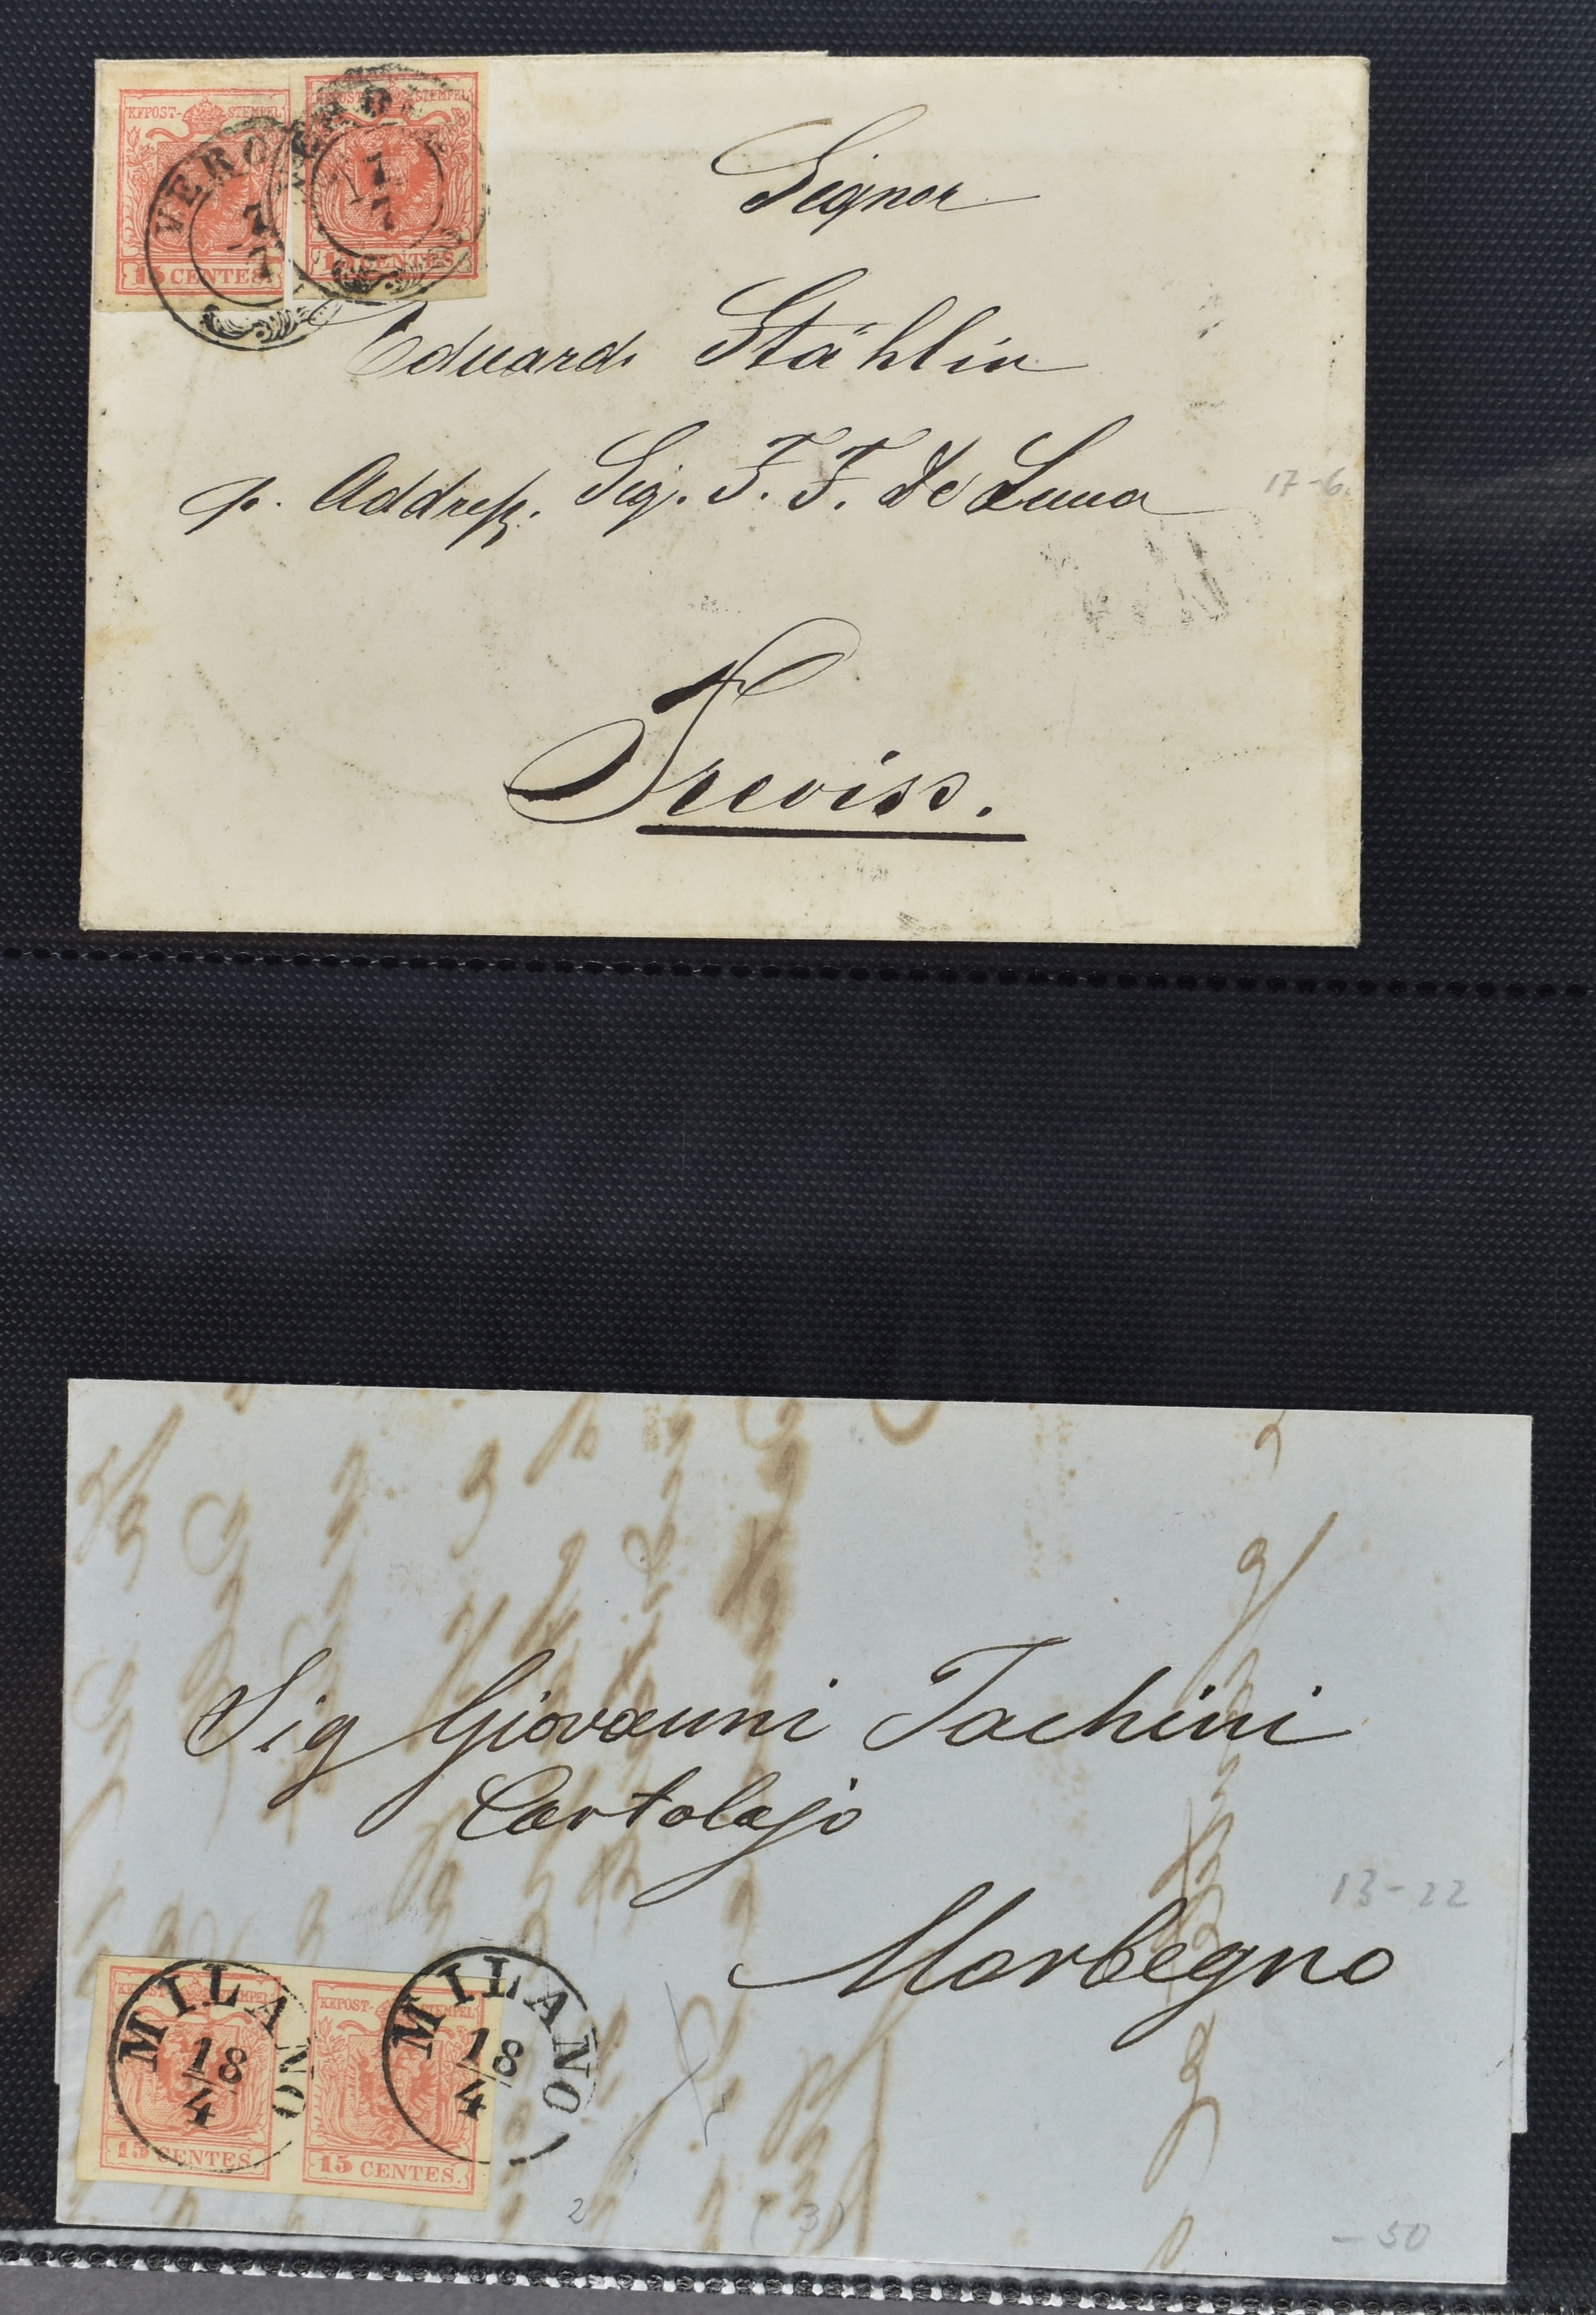 KKPOST-STEMPEL
15 CENTES.
VERO
7
7
KKPOST-STEMPEL
15 CENTES.
VERO
7
7
Signor
Eduard Stählin
p. Addreß. Sig. F. F. de Luna
17-6.
Treviso.
Sig Giovanni Tachini
Cartolajo
13-22
Morbegno
KKPOST-STEMPEL
15 CENTES.
MILANO
18
4
KKPOST-STEMPEL
15 CENTES.
MILANO
18
4
2
(3)
-50